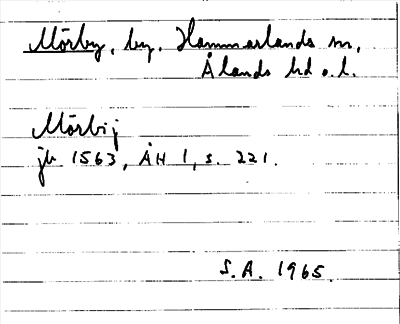 Mörby, by, Hammarlands sn,
Ålands hd o. l.
Mörbij
jb 1563, ÅH 1, s. 221.
S.A. 1965.